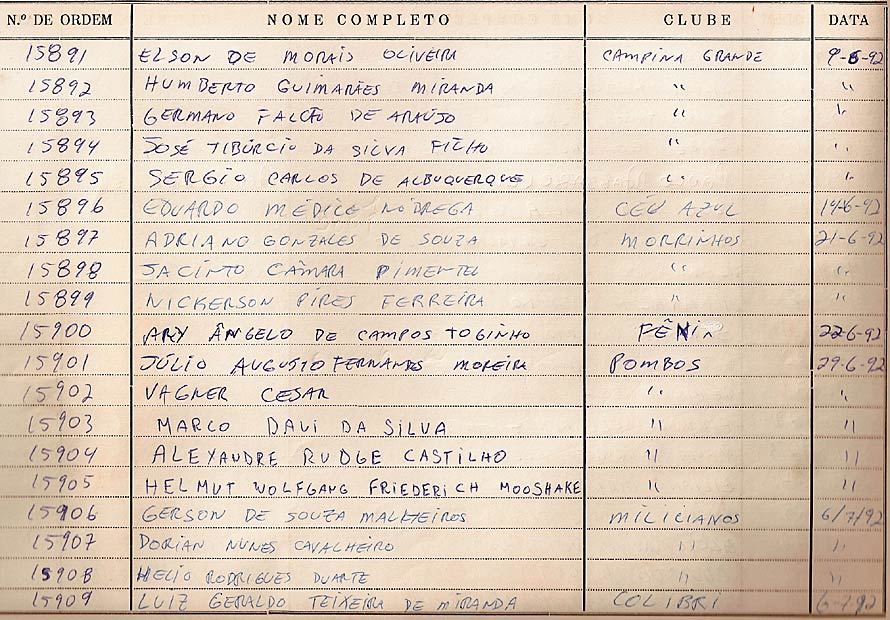 N.º DE ORDEM NOME COMPLETO CLUBE DATA
15891 ELSON DE MORAIS OLIVEIRA CAMPINA GRANDE 9-6-92
15892 HUMBERTO GUIMARÃES MIRANDA " "
15893 GERMANO FALCÃO DE ARAÚJO " "
15894 JOSÉ TIBÚRCIO DA SILVA FILHO " "
15895 SERGIO CARLOS DE ALBUQUERQUE " "
15896 EDUARDO MÉDICE NÓBREGA CÉU AZUL 14-6-92
15897 ADRIANO GONZALES DE SOUZA MORRINHOS 21-6-92
15898 JACINTO CÂMARA PIMENTEL " "
15899 NICKERSON PIRES FERREIRA " "
15900 ARY ÂNGELO DE CAMPOS TOGINHO FÊNIX 22-6-92
15901 JÚLIO AUGUSTO FERNANDES MOREIRA POMBOS 29-6-92
15902 VAGNER CESAR " "
15903 MARCO DAVI DA SILVA " "
15904 ALEXANDRE RUDGE CASTILHO " "
15905 HELMUT WOLFGANG FRIEDERICH MOOSHAKE " "
15906 GERSON DE SOUZA MALHEIROS MILICIANOS 6/7/92
15907 DORIAN NUNES CAVALHEIRO " "
15908 HELIO RODRIGUES DUARTE " "
15909 LUIZ GERALDO TEIXEIRA DE MIRANDA COLIBRI 6-7-92